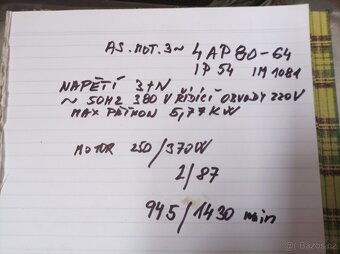 AS. MOT. 3~ 4AP80-64
IP 54 IM 1081
NAPĚTÍ 3+N
~ 50HZ 380 V ŘÍDÍCÍ OBVODY 220V
MAX PŘÍKON 5,77 KW
MOTOR 250/370W
2/87
945/1430 min